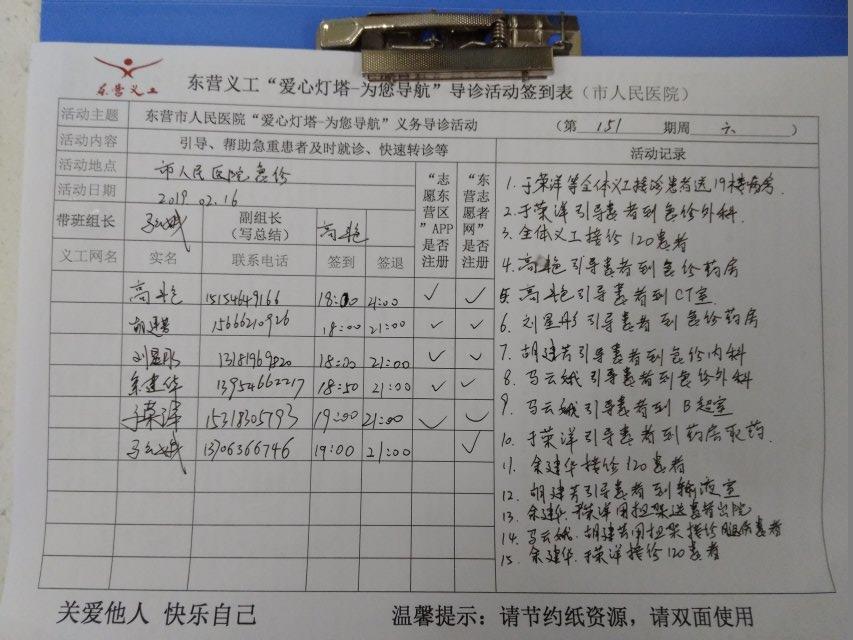 东营义工
东营义工“爱心灯塔-为您导航”导诊活动签到表（市人民医院）
活动主题 东营市人民医院“爱心灯塔-为您导航”义务导诊活动 （第 151 期周 六 ）
活动内容 引导、帮助急重患者及时就诊、快速转诊等 活动记录
活动地点 市人民医院急诊
活动日期 2019.02.16
带班组长 马云娥 副组长（写总结） 高艳 “志愿东营区”APP是否注册 “东营志愿者网”是否注册
义工网名 实名 联系电话 签到 签退
高艳 15154649166 18:00 21:00 ✓ ✓
胡建芳 15666210926 18:00 21:00 ✓ ✓
刘星彤 13181969820 18:00 21:00 ✓ ✓
余建华 13954662217 18:50 21:00 ✓ ✓
于荣洋 15318305793 19:00 21:00 ✓ ✓
马云娥 13706366746 19:00 21:00 ✓
1.于荣洋等全体义工接诊患者送19楼病房.
2.于荣洋引导患者到急诊外科.
3.全体义工接诊120患者
4.高艳引导患者到急诊药房
5.高艳引导患者到CT室.
6.刘星彤引导患者到急诊药房
7.胡建芳引导患者到急诊内科
8.马云娥引导患者到急诊外科
9.马云娥引导患者到B超室
10.于荣洋引导患者到药房取药.
11.余建华接诊120患者
12.胡建芳引导患者到输液室
13.余建华.于荣洋用担架送患者出院
14.马云娥.胡建芳用担架接诊腿伤患者
15.余建华.于荣洋接诊120患者
关爱他人 快乐自己 温馨提示：请节约纸资源，请双面使用